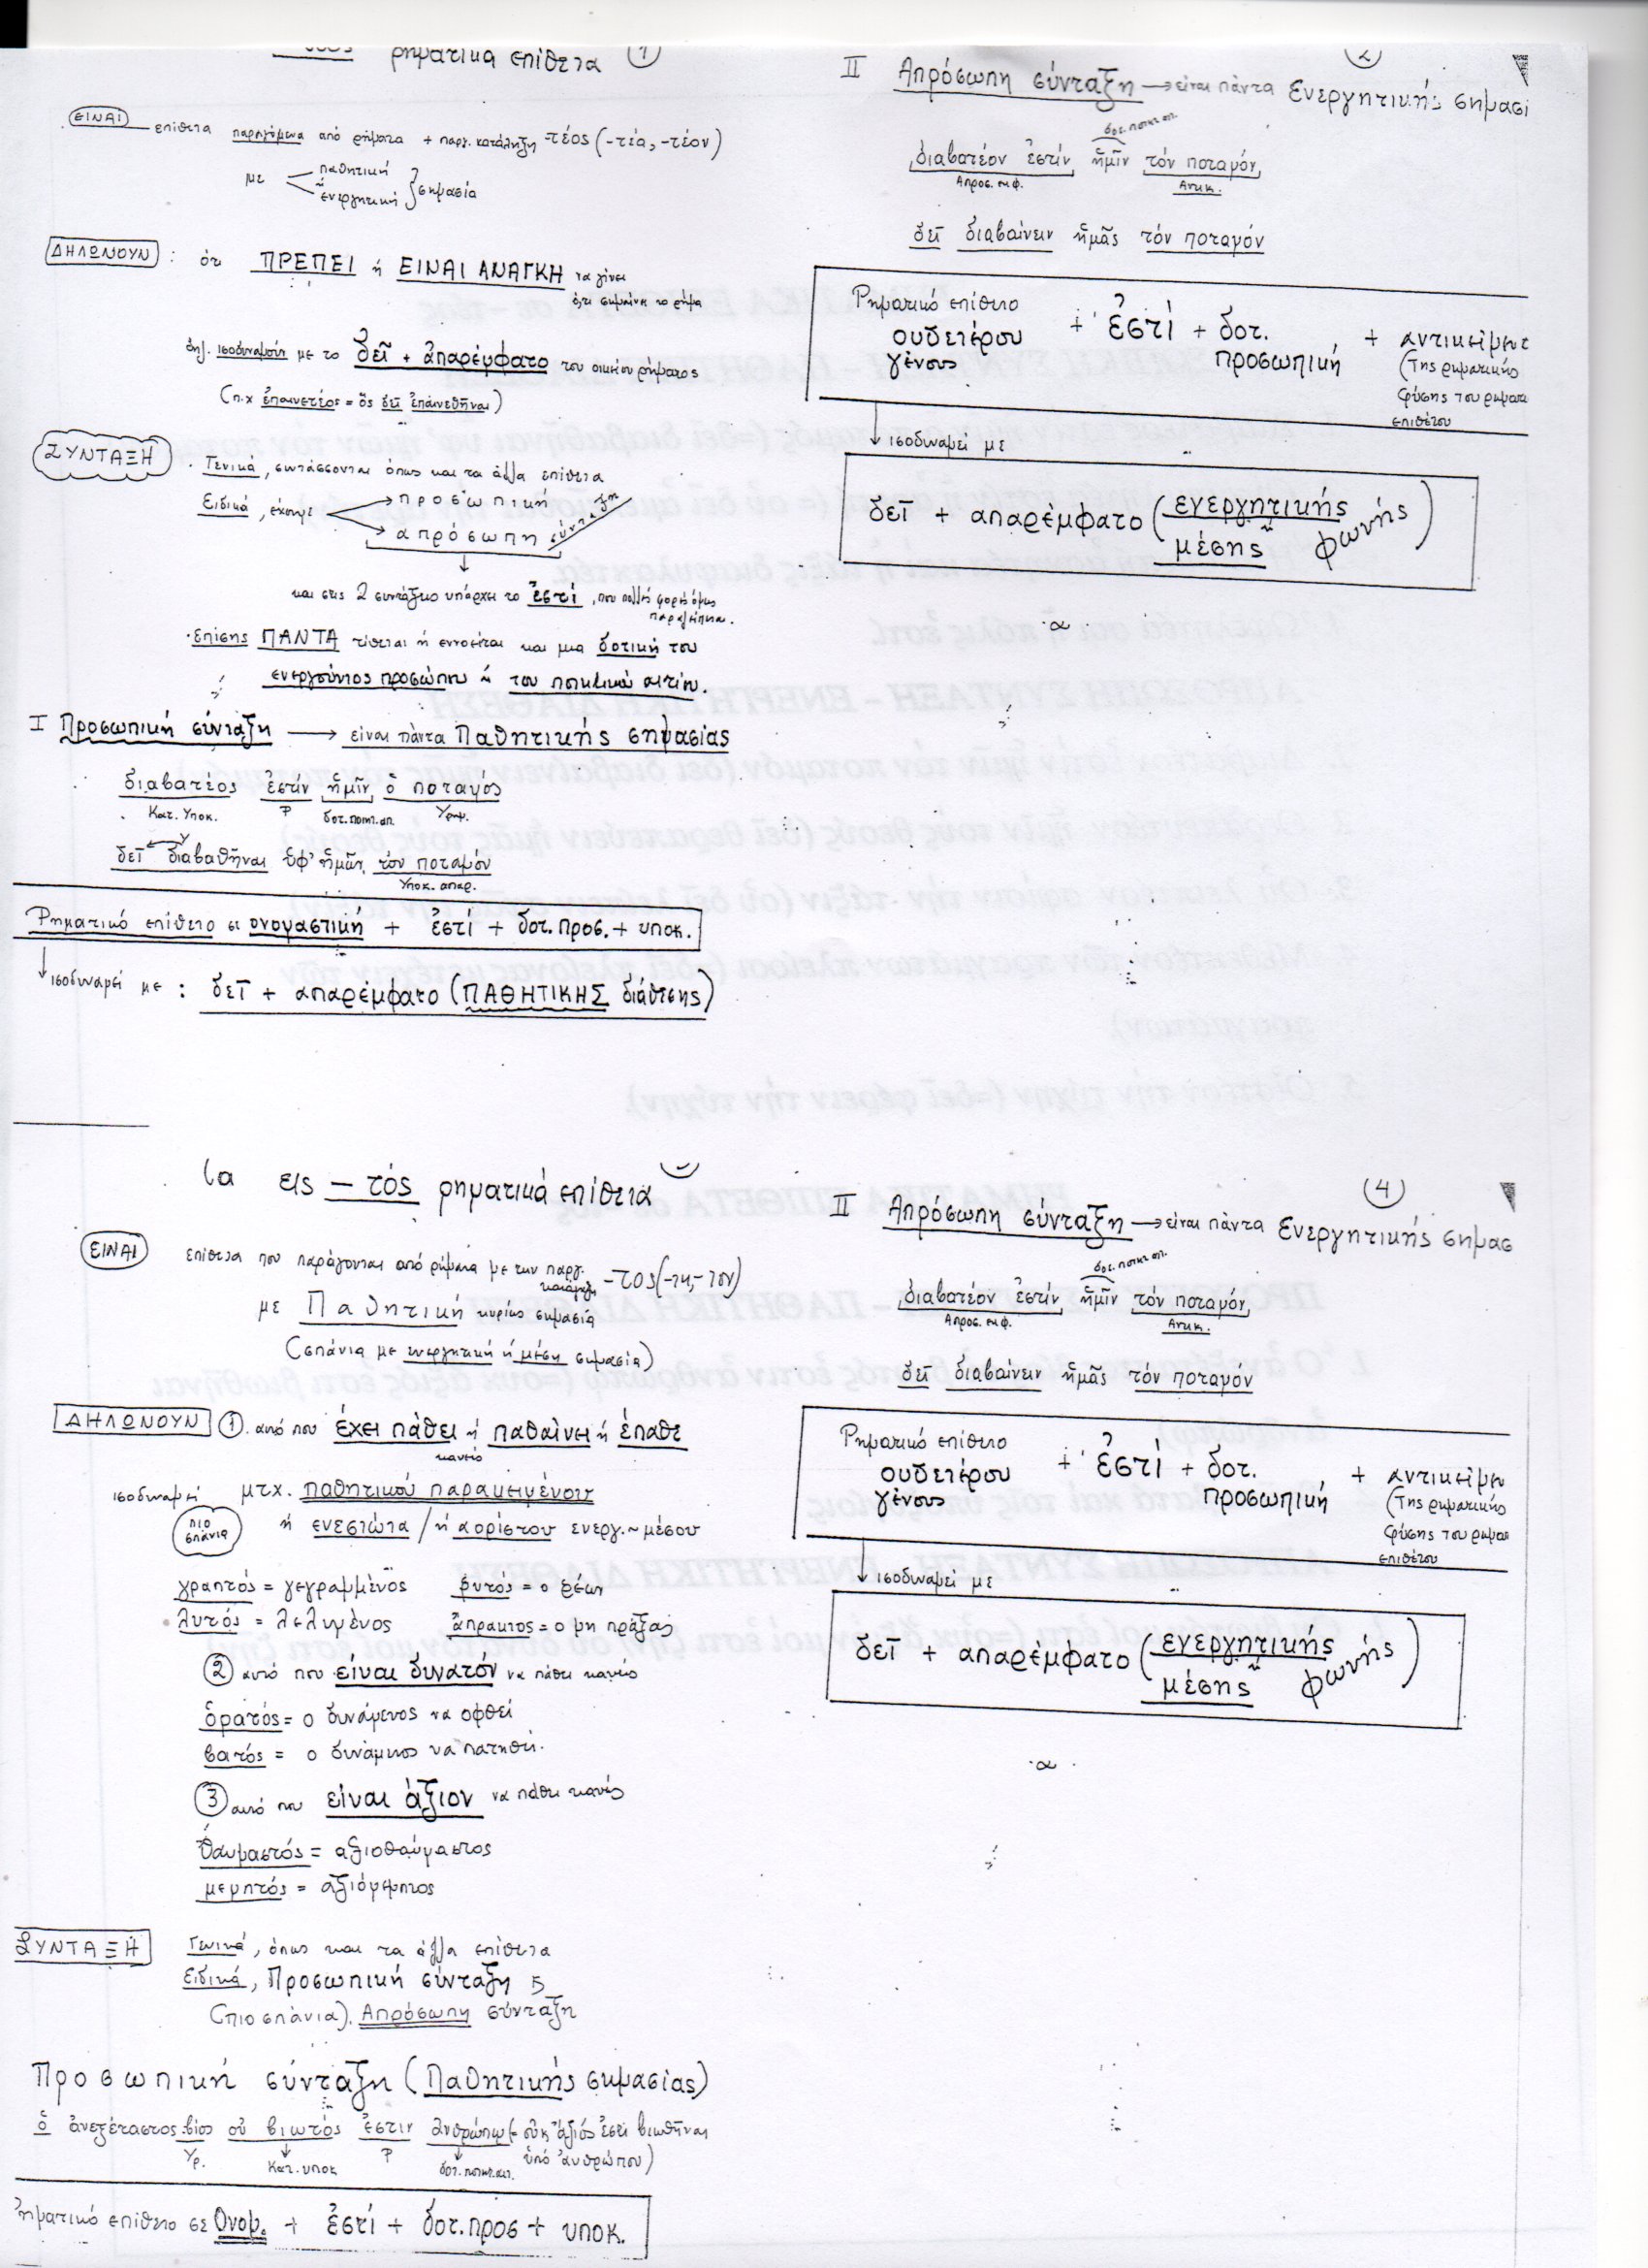 ρηματικά επίθετα ①
ΕΙΝΑΙ επίθετα παραγόμενα από ρήματα + παραγ. κατάληξη -τέος (-τέα, -τέον)
με παθητική
ἤ ενεργητική } σημασία
ΔΗΛΩΝΟΥΝ : ότι ΠΡΕΠΕΙ ή ΕΙΝΑΙ ΑΝΑΓΚΗ να γίνει
ό,τι σημαίνει το ρήμα
δηλ. ισοδυναμούν με το δεῖ + ἀπαρέμφατο του οικείου ρήματος
(π.χ ἐπαινετέος = ὅς δεῖ ἐπαινεθῆναι)
ΣΥΝΤΑΞΗ · Γενικά, συντάσσονται όπως και τα άλλα επίθετα
Ειδικά, έχουμε → προσωπική
→ απρόσωπη σύνταξη
και στις 2 συντάξεις υπάρχει το ἐστί, που πολλές φορές όμως
παραλείπεται.
· Επίσης ΠΑΝΤΑ τίθεται ή εννοείται και μια δοτική του
ενεργούντος προσώπου ή του ποιητικού αιτίου.
I Προσωπική σύνταξη → είναι πάντα Παθητικής σημασίας
διαβατέος ἐστίν ἡμῖν ὁ ποταμός
Κατ. Υποκ. Ρ δοτ. ποιητ. αι. Υποκ.
δεῖ διαβαθῆναι ὑφ' ἡμῶν τόν ποταμόν
Υποκ. απαρ.
Ρηματικό επίθετο σε ονομαστική + ἐστί + δοτ. προς. + υποκ.
ισοδυναμεί με : δεῖ + απαρέμφατο (ΠΑΘΗΤΙΚΗΣ διάθεσης)
II Απρόσωπη σύνταξη → είναι πάντα Ενεργητικής σημασι
δοτ. ποιητ. αι.
διαβατέον ἐστίν ἡμῖν τόν ποταμόν,
Απροσ. εκφ. Αντικ.
δεῖ διαβαίνειν ἡμᾶς τόν ποταμόν
Ρηματικό επίθετο
ουδετέρου + ἐστί + δοτ. + αντικείμε
γένους προσωπική (της ρηματικής
φύσης του ρηματ
επιθέτου
ισοδυναμεί με
δεῖ + απαρέμφατο (ενεργητικής
ἤ μέσης φωνής)
·α·
Τα εις -τός ρηματικά επίθετα
ΕΙΝΑΙ επίθετα που παράγονται από ρήματα με την παραγ.
κατάληξη -τος (-τη, -τον)
με Παθητική κυρίως σημασία
(σπάνια με ενεργητική ή μέση σημασία)
ΔΗΛΩΝΟΥΝ ①. αυτό που έχει πάθει ή παθαίνει ή έπαθε
κανείς
ισοδυναμεί μτχ. παθητικού παρακειμένου
πιο σπάνια ή ενεστώτα / ή αορίστου ενεργ. ~ μέσου
γραπτός = γεγραμμένος ῥυτός = ο ρέων
λυτός = λελυμένος ἄπρακτος = ο μη πράξας
② αυτό που είναι δυνατόν να πάθει κανείς
ὁρατός = ο δυνάμενος να οφθεί
βατός = ο δυνάμενος να πατηθεί.
③ αυτό που είναι άξιον να πάθει κανείς
θαυμαστός = αξιοθαύμαστος
μεμπτός = αξιόμεμπτος
ΣΥΝΤΑΞΗ Γενικά, όπως και τα άλλα επίθετα
Ειδικά, Προσωπική σύνταξη
(πιο σπάνια). Απρόσωπη σύνταξη
Προσωπική σύνταξη (Παθητικής σημασίας)
ὁ ἀνεξέταστος βίος οὐ βιωτός ἐστιν ἀνθρώπῳ (= οὐκ ἄξιός ἐστι βιωθῆναι
Υπ. Κατ. υποκ Ρ δοτ. ποιητ. αιτ. ὑπό ἀνθρώπου)
Ρηματικό επίθετο σε Ονομ. + ἐστί + δοτ. προσ + υποκ.
④
II Απρόσωπη σύνταξη → είναι πάντα Ενεργητικής σημασ
δοτ. ποιητ. αι.
διαβατέον ἐστίν ἡμῖν τόν ποταμόν,
Απροσ. εκφ. Αντικ.
δεῖ διαβαίνειν ἡμᾶς τόν ποταμόν
Ρηματικό επίθετο
ουδετέρου + ἐστί + δοτ. + αντικείμε
γένους προσωπική (της ρηματικής
φύσης του ρηματ
επιθέτου
ισοδυναμεί με
δεῖ + απαρέμφατο (ενεργητικής
ἤ μέσης φωνής)
·α·